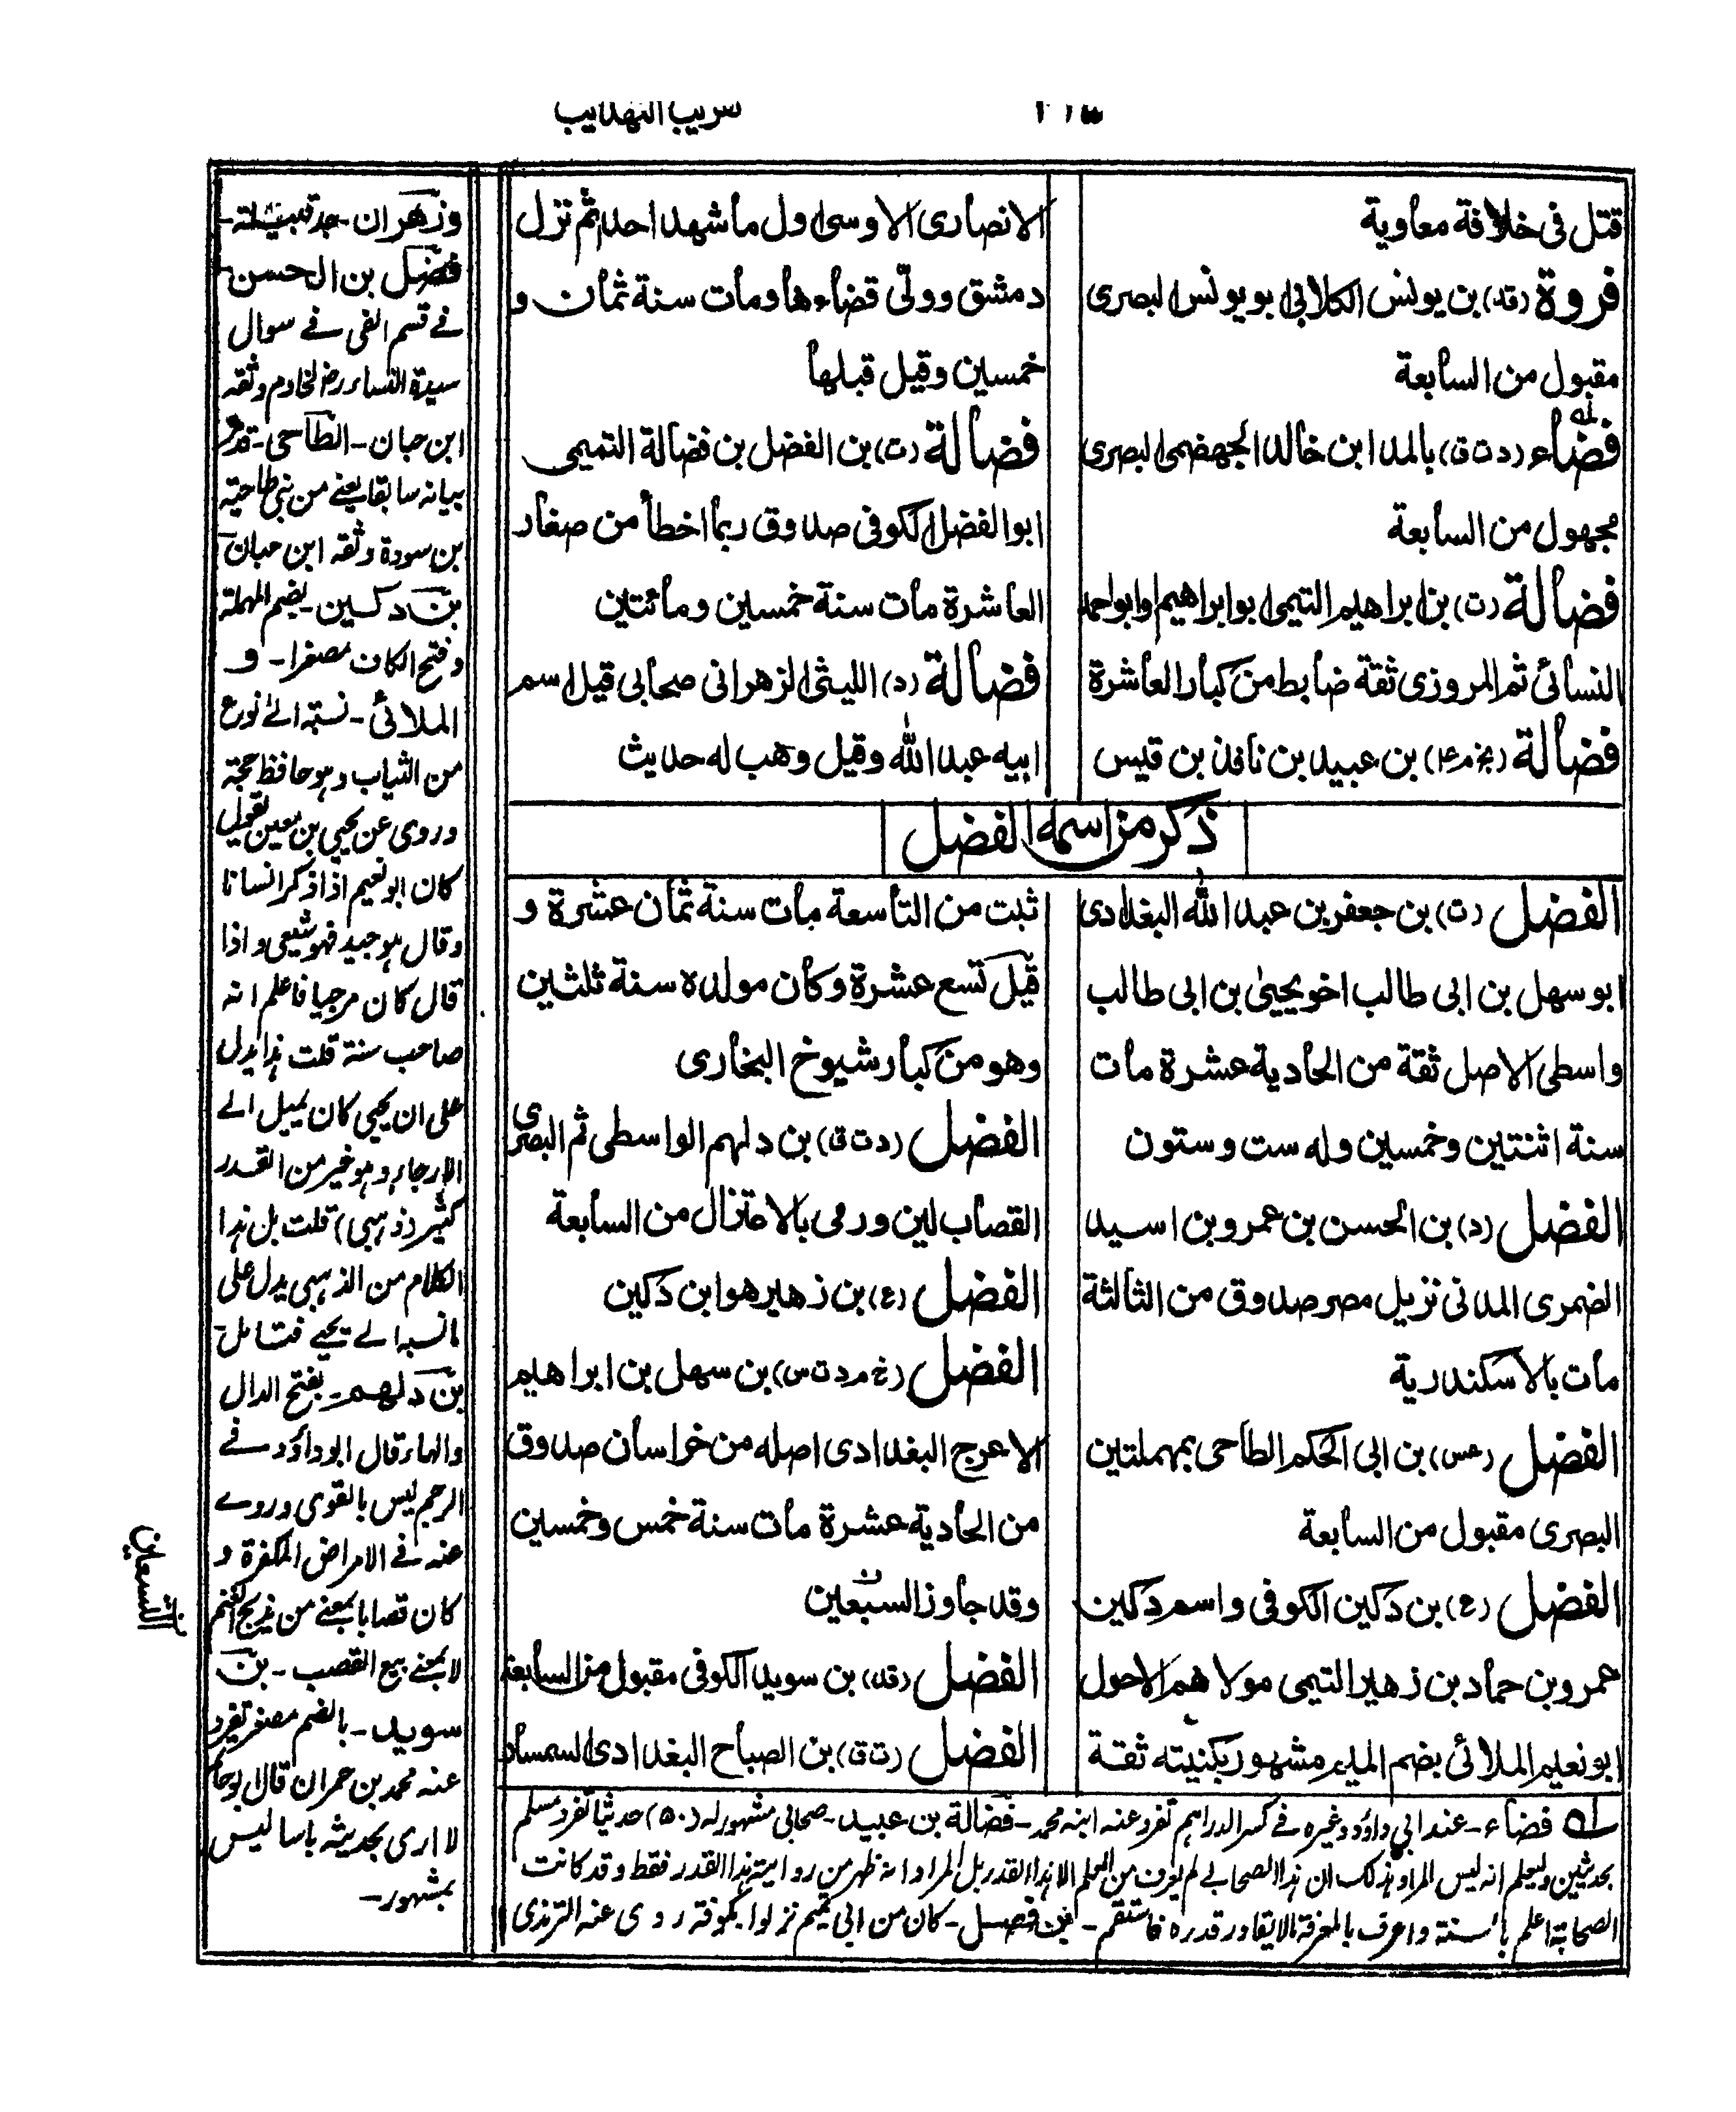 تقريب التهذيب
قتل فى خلافة معاوية
فروة (قد) بن يونس الكلابى ابو يونس البصرى
مقبول من السابعة
فضاء (د ت ق) بالمد ابن خالد الجهضمى البصرى
مجهول من السابعة
فضالة (ت) بن ابراهيم التيمى ابو ابراهيم او ابو احمد
النسائى ثم المروزى ثقة ضابط من كبار العاشرة
فضالة (بخ م ٤) بن عبيد بن نافذ بن قيس
الانصارى الاوسى اول ما شهد احد ثم نزل
دمشق وولّى قضاءها ومات سنة ثمان و
خمسين وقيل قبلها
فضالة (ت) بن الفضل بن فضالة التميمى
ابو الفضل الكوفى صدوق ربما اخطأ من صغار
العاشرة مات سنة خمسين ومائتين
فضالة (د) الليثى الزهرانى صحابى قيل اسم
ابيه عبد الله وقيل وهب له حديث
ذكر من اسمه الفضل
الفضل (ت) بن جعفر بن عبد الله البغدادى
ابو سهل بن ابى طالب اخو يحيىٰ بن ابى طالب
واسطى الاصل ثقة من الحادية عشرة مات
سنة اثنتين وخمسين وله ست وستون
الفضل (د) بن الحسن بن عمرو بن اسيد
الضمرى المدنى نزيل مصر صدوق من الثالثة
مات بالاسكندرية
الفضل (عس) بن ابى الحكم الطاحى بمهملتين
البصرى مقبول من السابعة
الفضل (ع) بن دكين الكوفى واسم دكين
عمرو بن حماد بن زهير التيمى مولاهم الاحول
ابو نعيم الملائى بضم الميم مشهور بكنيته ثقة
ثبت من التاسعة مات سنة ثمان عشرة و
قيل تسع عشرة وكان مولده سنة ثلثين
وهو من كبار شيوخ البخارى
الفضل (د ت ق) بن دلهم الواسطى ثم البصرى
القصاب لين ورمى بالاعتزال من السابعة
الفضل (ع) بن زهير هو ابن دكين
الفضل (خ م د ت س) بن سهل بن ابراهيم
الاعرج البغدادى اصله من خراسان صدوق
من الحادية عشرة مات سنة خمس وخمسين
وقد جاوز السبعين
الفضل (قد) بن سويد الكوفى مقبول من السابعة
الفضل (ت ق) بن الصباح البغدادى السمسار
وزهران - جد قبيلة -
فضل بن الحسن
فے قسم الفى فے سوال
سيدة النساء رضـ لخادم وثقه
ابن حبان - الطاحى - قدم
بيانه سابقا يعنے من بنى طاحية
ابن سودة وثقه ابن حبان
بن دكين - بضم المهملة
وفتح الكاف مصغرا - و
الملائى - نسبة الے نوع
من الثياب وهو حافظ حجة
وروى عن يحيى بن معين يقول
كان ابو نعيم اذا ذكر انسانا
وقال هو جيد فهو شيعى و اذا
قال كان مرجيا فاعلم انه
صاحب سنة قلت هذا يدل
على ان يحيى كان يميل الے
الارجاء وهو خير من القدر
كثير (ذهبى) قلت بل هذا
الكلام من الذهبى يدل على
ما نسبه الے يحيے فتامل
بن دلهم - بفتح الدال
والهاء قال ابو داؤد فے
الرجم ليس بالقوى وروے
عنه فے الامراض المكفرة و
كان قصابا بمعنے من يذبح الغنم
لا بمعنے بيع القصب - بن
سويد - بالضم مصغر تفرد
عنه محمد بن حمران قال ابو حاتم
لا ارى بحديثه باسا ليس
بمشهور -
التسعين
له فضاء - عند ابى داؤد وغيره فے كسر الدراهم تفرد عنه ابنه محمد - فضالة بن عبيد - صحابى مشهور له (٥٠) حديثا تفرد مسلم
بحديثين وليعلم انه ليس المراد بذلك ان هذا الصحابے لم يعرف من العلم الا هذا القدر بل المراد انه ظهر من رواية هذا القدر فقط وقد كانت
الصحابة اعلم بالسنة واعرف بالمعرفة فاستقم - بن فضل - كان من ابى تميم نزلوا بكوفة روى عنه الترمذى